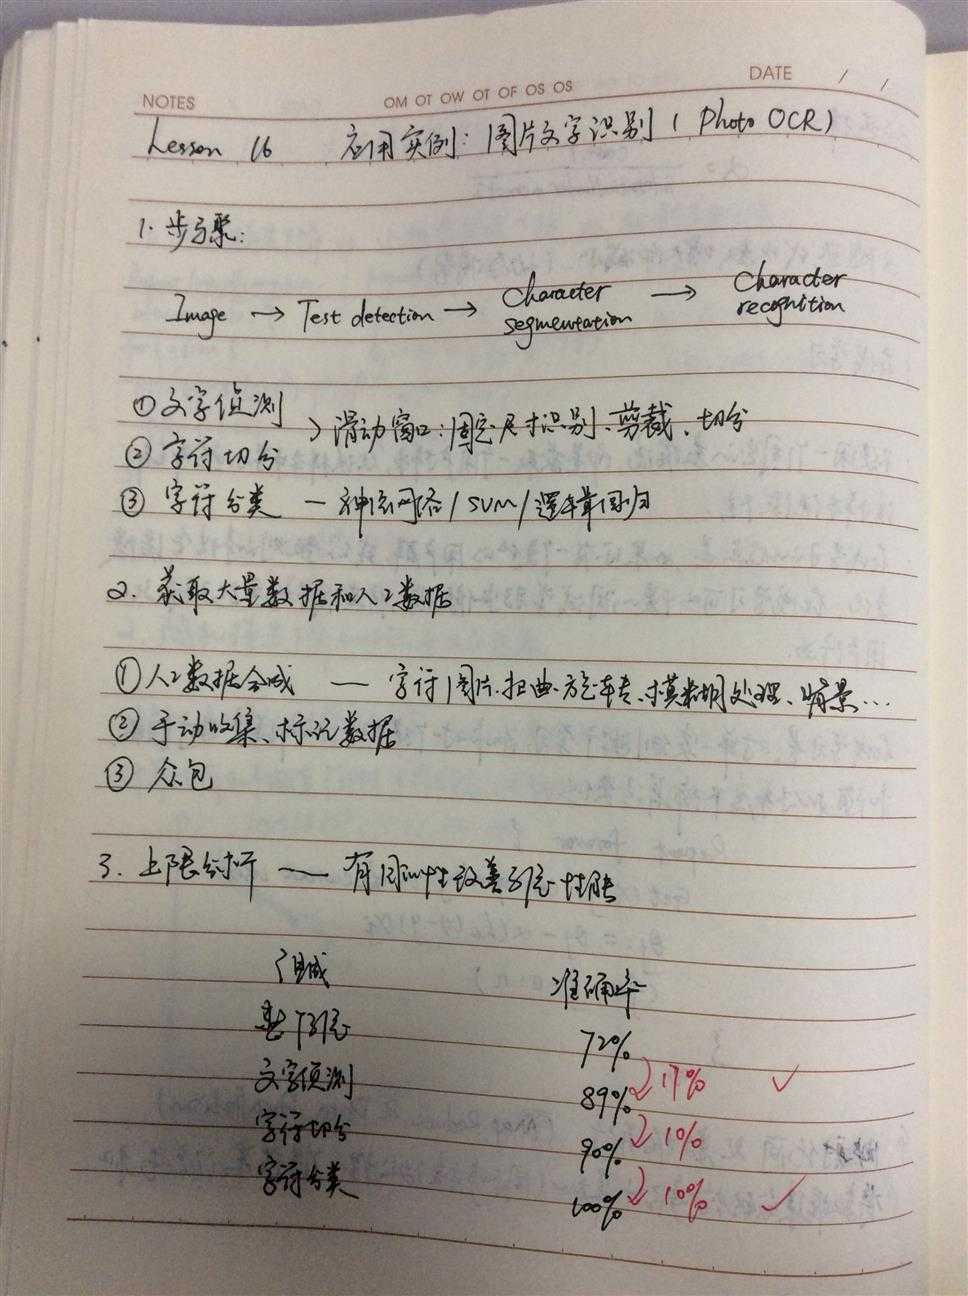 NOTES
OM OT OW OT OF OS OS
DATE / /
Lesson 16 应用实例: 图片文字识别 ( Photo OCR )
1. 步骤:
Image → Test detection → Character segmentation → Character recognition
① 文字侦测
② 字符切分
> 滑动窗口: 固定尺寸识别、剪裁、切分
③ 字符分类 — 神经网络 / SVM / 逻辑回归
2. 获取大量数据和人工数据
① 人工数据合成 — 字符图片.扭曲.旋转、模糊处理、背景...
② 手动收集、标记数据
③ 众包
3. 上限分析 — 有针对性改善系统性能
组成 准确率
整个系统 72%
17% ✓
文字侦测 89%
1%
字符切分 90%
10% ✓
字符分类 100%